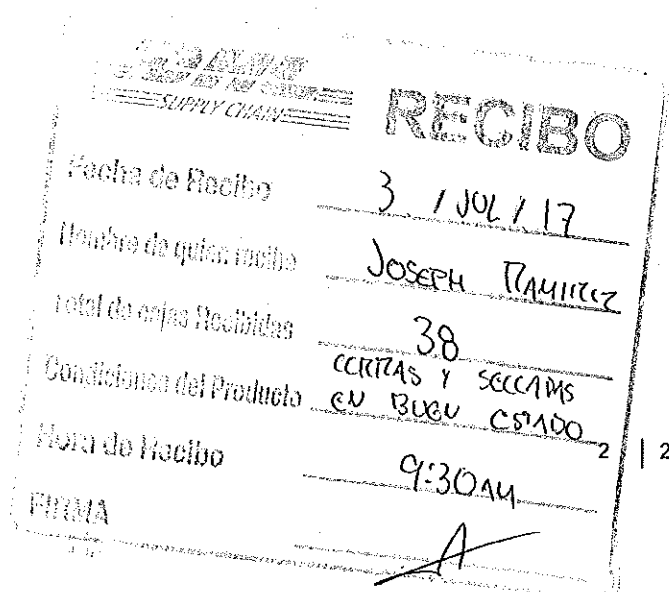 SUPPLY CHAIN
RECIBO
Fecha de Recibo 3 / JUL / 17
Nombre de quien recibe JOSEPH RAMIREZ
Total de cajas Recibidas 38
Condiciones del Producto CERRADAS Y SECCADAS
EN BUEN ESTADO
2 | 2
Hora de Recibo 9:30AM
FIRMA